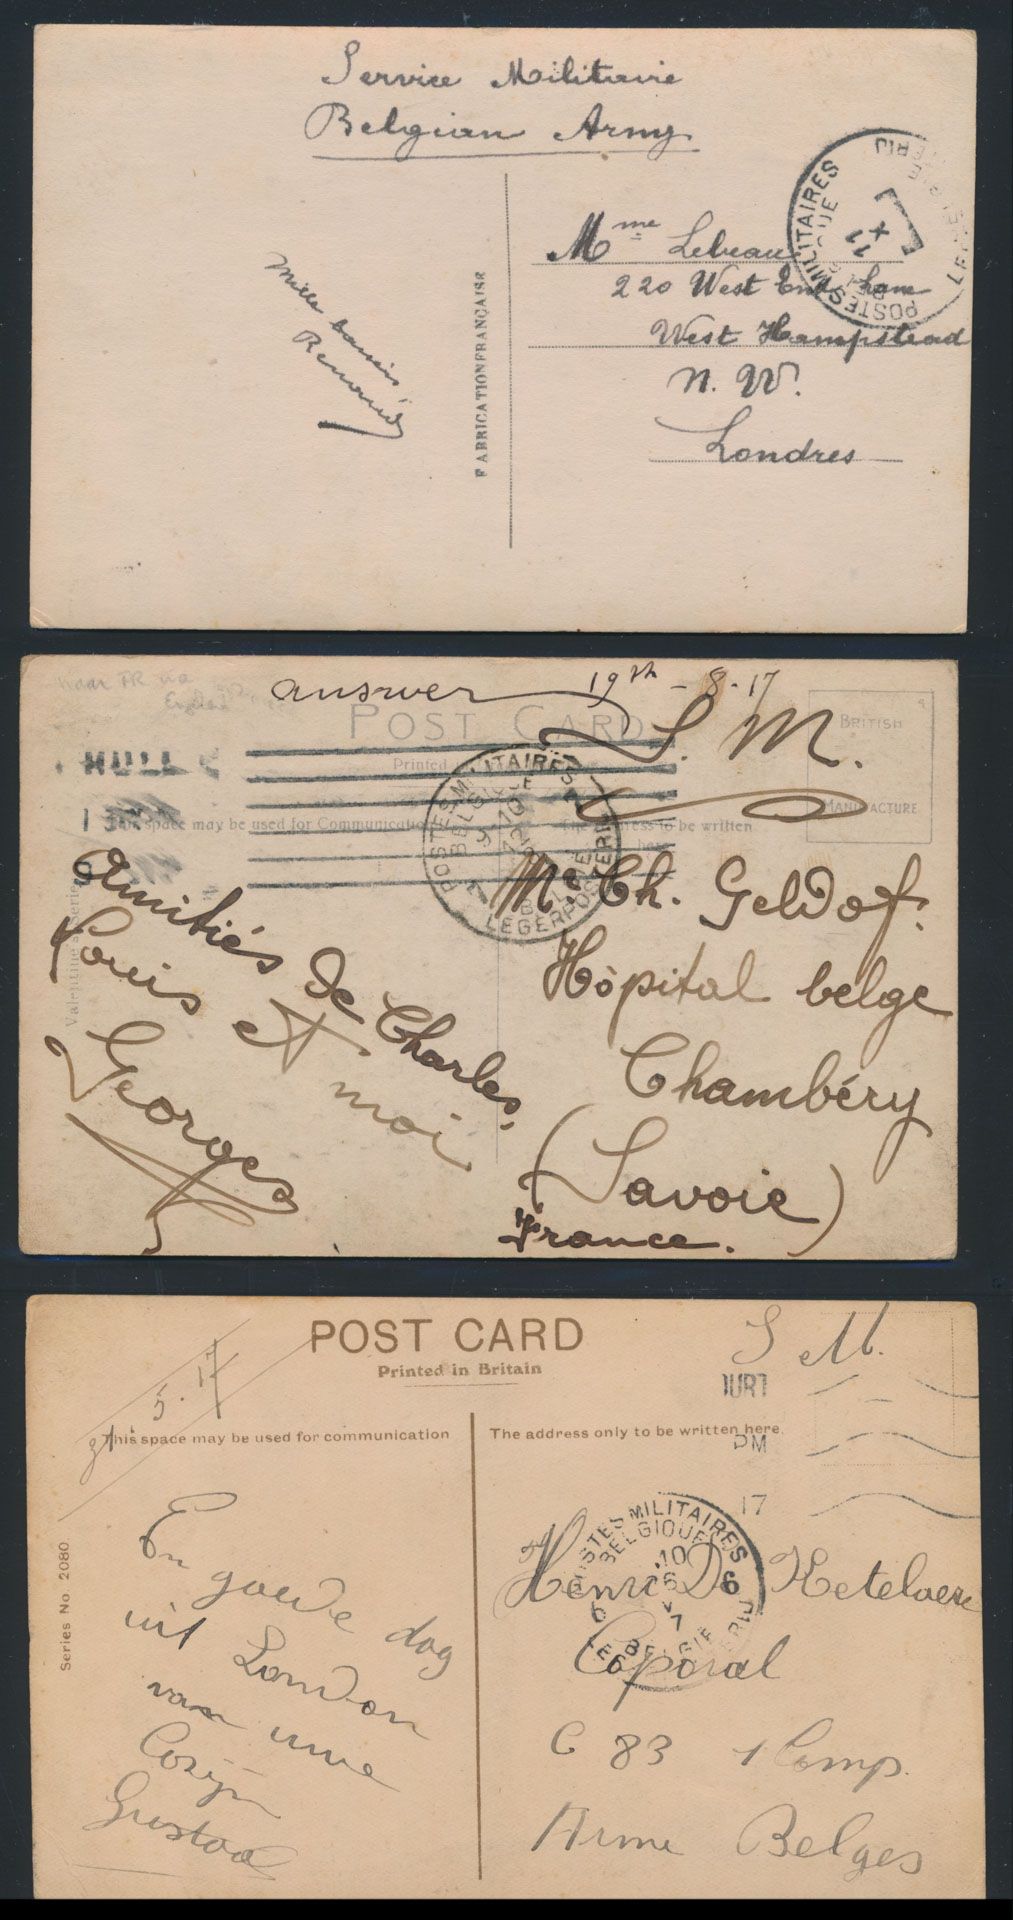 Service Militaire
Belgian Army
POSTES MILITAIRES
BELGIQUE
11
X
LEGERPOSTERIJ
Mme Lebeau
220 West End
West Hampstead
N. W.
Londres
Mille baisers
FABRICATION FRANÇAISE
answer 19th - 8-17
POST CARD
S. M.
BRITISH
MANUFACTURE
Printed
HULL
This space may be used for Communication
The address to be written
POSTES MILITAIRES
BELGIQUE
BELGIË
LEGERPOSTERIJ
Valentine's Series
Mr Ch. Geldof.
Hôpital belge
Chambéry
(Savoie)
France.
Amitiés de Charles,
Louis et moi
Georges
POST CARD
Printed in Britain
S M.
5. 17
This space may be used for communication
The address only to be written here.
PM
17
POSTES MILITAIRES
BELGIQUE
10
6
BELGIE
LEGERPOSTERIJ
Series No 2080.
Henri De Ketelaere
Coporal
C 83 1 Comp.
Arme Belges
En goede dag
uit London
van uwe
Cozijn
Gustaaf